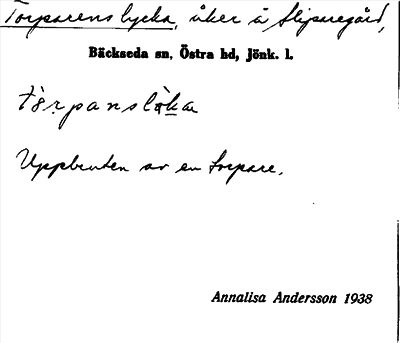 Torparens lycka, åker å Slipsregård,
Bäckseda sn, Östra hd, Jönk. l.
tȯṛpanslɩ̇̀kan
Uppbruten av en torpare.
Annalisa Andersson 1938